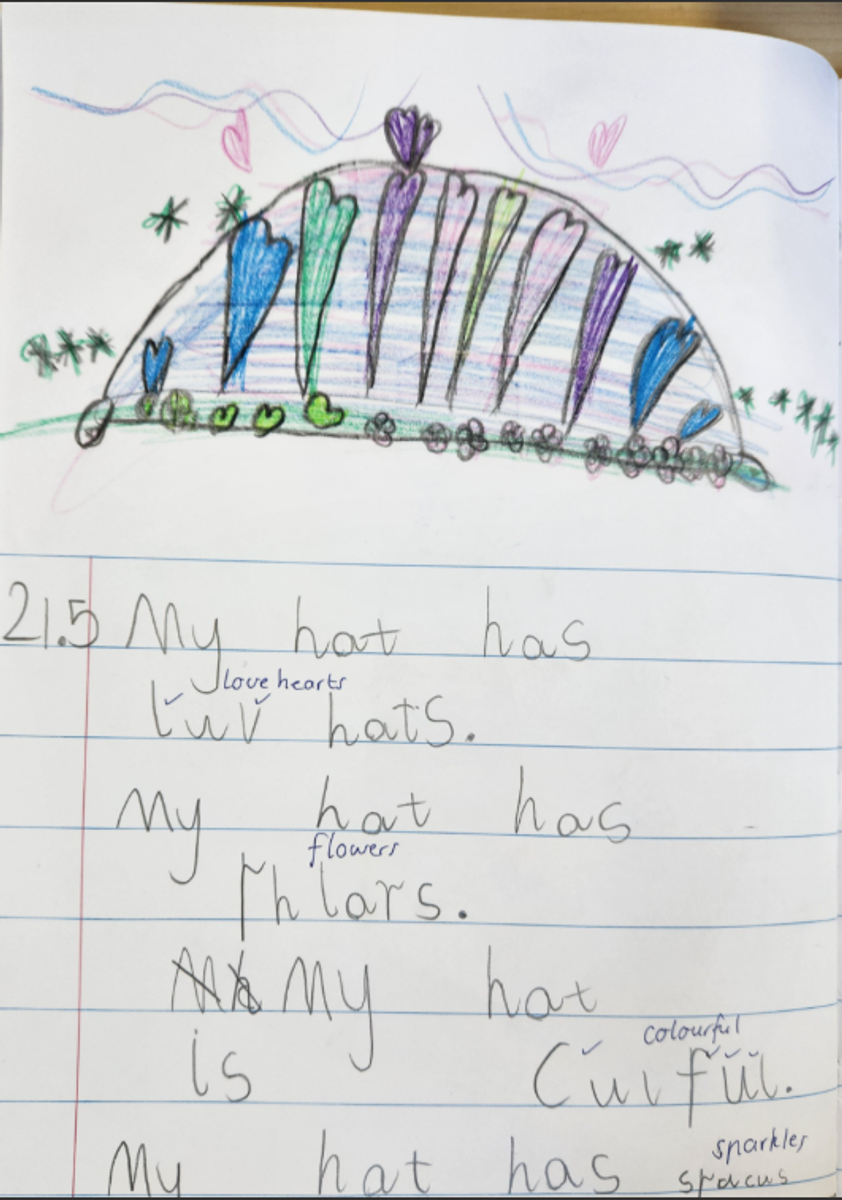 21.5 My hat has
love hearts
luv hats.
My hat has
flowers
fhlars.
My hat
colourful
is Culful.
sparkles
My hat has spacus